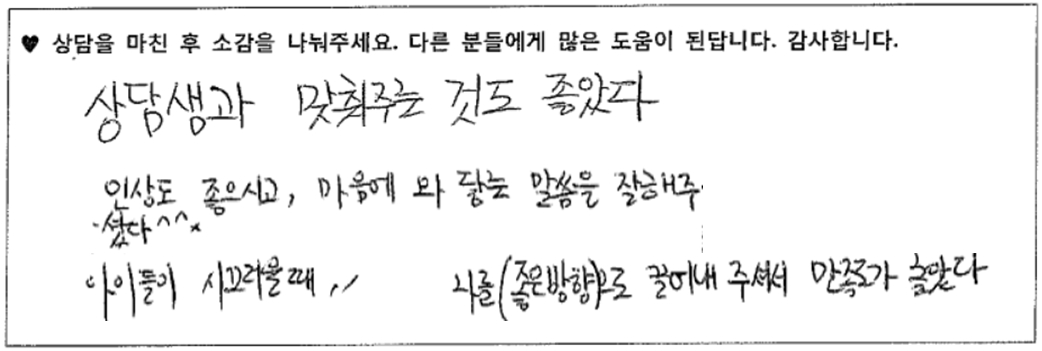 ♥ 상담을 마친 후 소감을 나눠주세요. 다른 분들에게 많은 도움이 된답니다. 감사합니다.
상담생과 맞춰주는 것도 좋았다
인상도 좋으시고, 마음에 와 닿는 말씀을 잘해주
셨다^^
아이들이 시끄러울때,, 나를(좋은방향)으로 끌어내 주셔서 만족도가 높았다